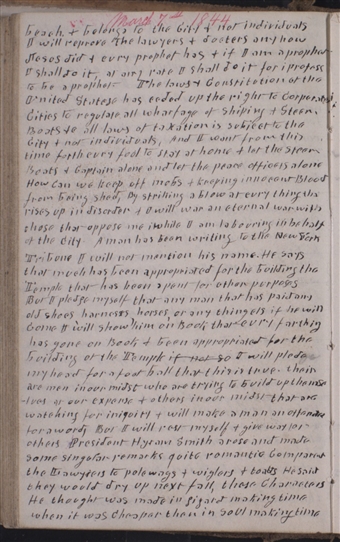 March 7th 1844
beach & belongs to the City & not individuals
I will reprove the lawyers & doctors any how
Jesus did & evry prophet has & if I am a prophet
I shall do it, at any rate I shall do it for i profess
to be a prophet. The laws & Constitution of the
United States has ceded up the right to Corporate
Cities to regulate all wharfage of Shiping & Steem
Boats & all laws of taxation is subject to the
City & not individuals, And I want from this
time forth evry fool to stay at home & let the Steem
Boats & Captain alone and let the peace officers alone
How Can we keep off mobs & keeping innocent Blood
from being shed, By striking a blow at evry thing that
rises up in disorder & I will war an eternal war with
those that oppose me while I am labouring in behalf
of the City. A man has been writing to the New York
Tribune I will not mention his name. He says
that much has been appropriated for the building the
Temple that has been spent for other purposes
But I pledge myself that any man that has paid any
old shoes harness, horses, or any thing els if he will
Come I will show him on Book that evry farthing
has gone on Book & been appropriated for the
building of the Temple if not so I will pledge
my head for a foot ball that this is true. their
are men in our midst who are trying to build up themse
-lves at our expense & others in our midst that are
watching for iniquity & will make a man an offender
for a word, But I will rest myself & give way for
others President Hyrum Smith arose and made
some singular remarks quite romantic Compared
the Lawyers to polewogs & wiglers & toads He said
they would dry up next fall, those Characters
He thought was made in gizard making time
when it was Cheaper than in soul making time